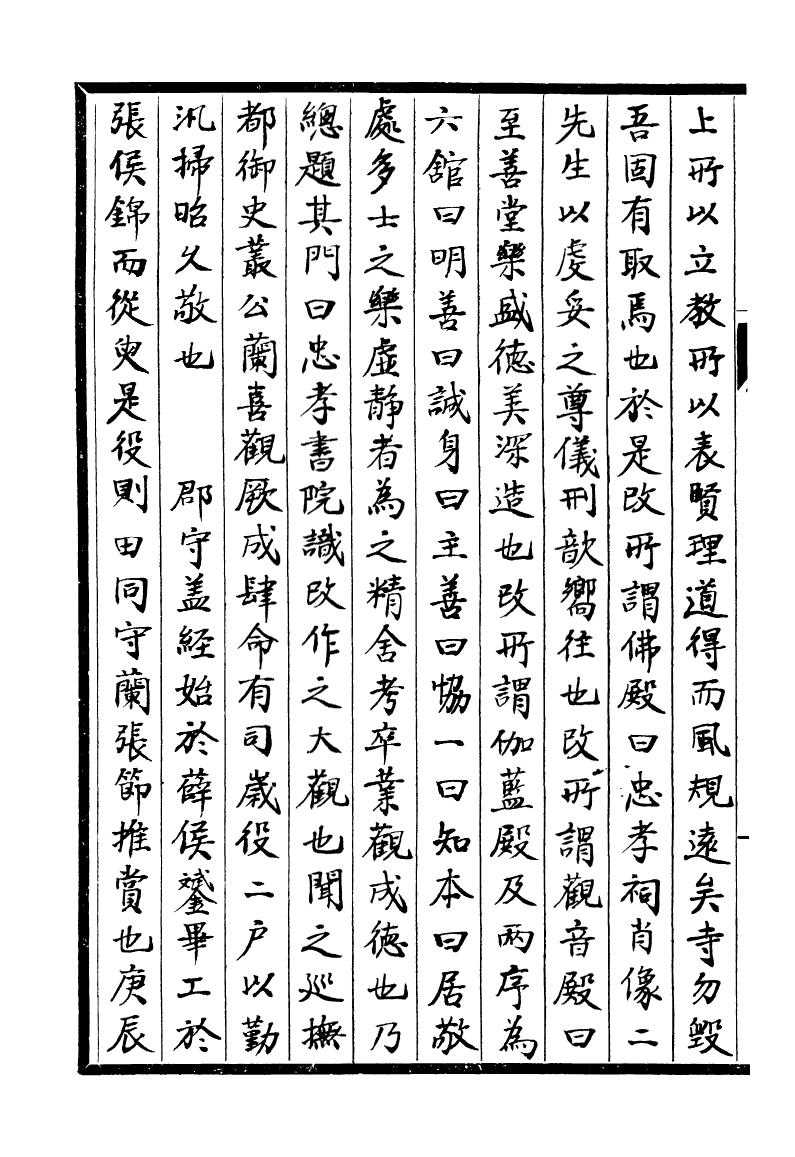 上所以立教所以表賢理道得而風規遠矣寺勿毀
吾固有取焉也於是改所謂佛殿曰忠孝祠肖像二
先生以虔妥之尊儀刑歆嚮往也改所謂觀音殿曰
至善堂樂盛德美深造也改所謂伽藍殿及兩序為
六館曰明善曰誠身曰主善曰恊一曰知本曰居敬
處多士之樂虛靜者為之精舍考卒業觀成德也乃
總題其門曰忠孝書院識改作之大觀也聞之巡撫
都御史叢公蘭喜觀厥成肆命有司歲役二戶以勤
汛掃昭久敬也　　郡守盖經始於薛侯鋆畢工於
張侯錦而從臾是役則田同守蘭張節推賞也庚辰